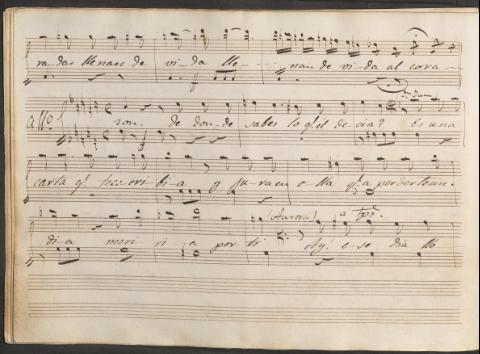 ra-das llenas de vi-da lle- nan-de vi-da al cora-
All.º zon. de don-de sabes lo q.e él de-cia? Es una
carta q.e escri-bi-a y ju-ra en e-lla q.e a perderte un.
di-a mori-ri-a por ti (Aurora) a tpo. oh q.e e-se dia lle